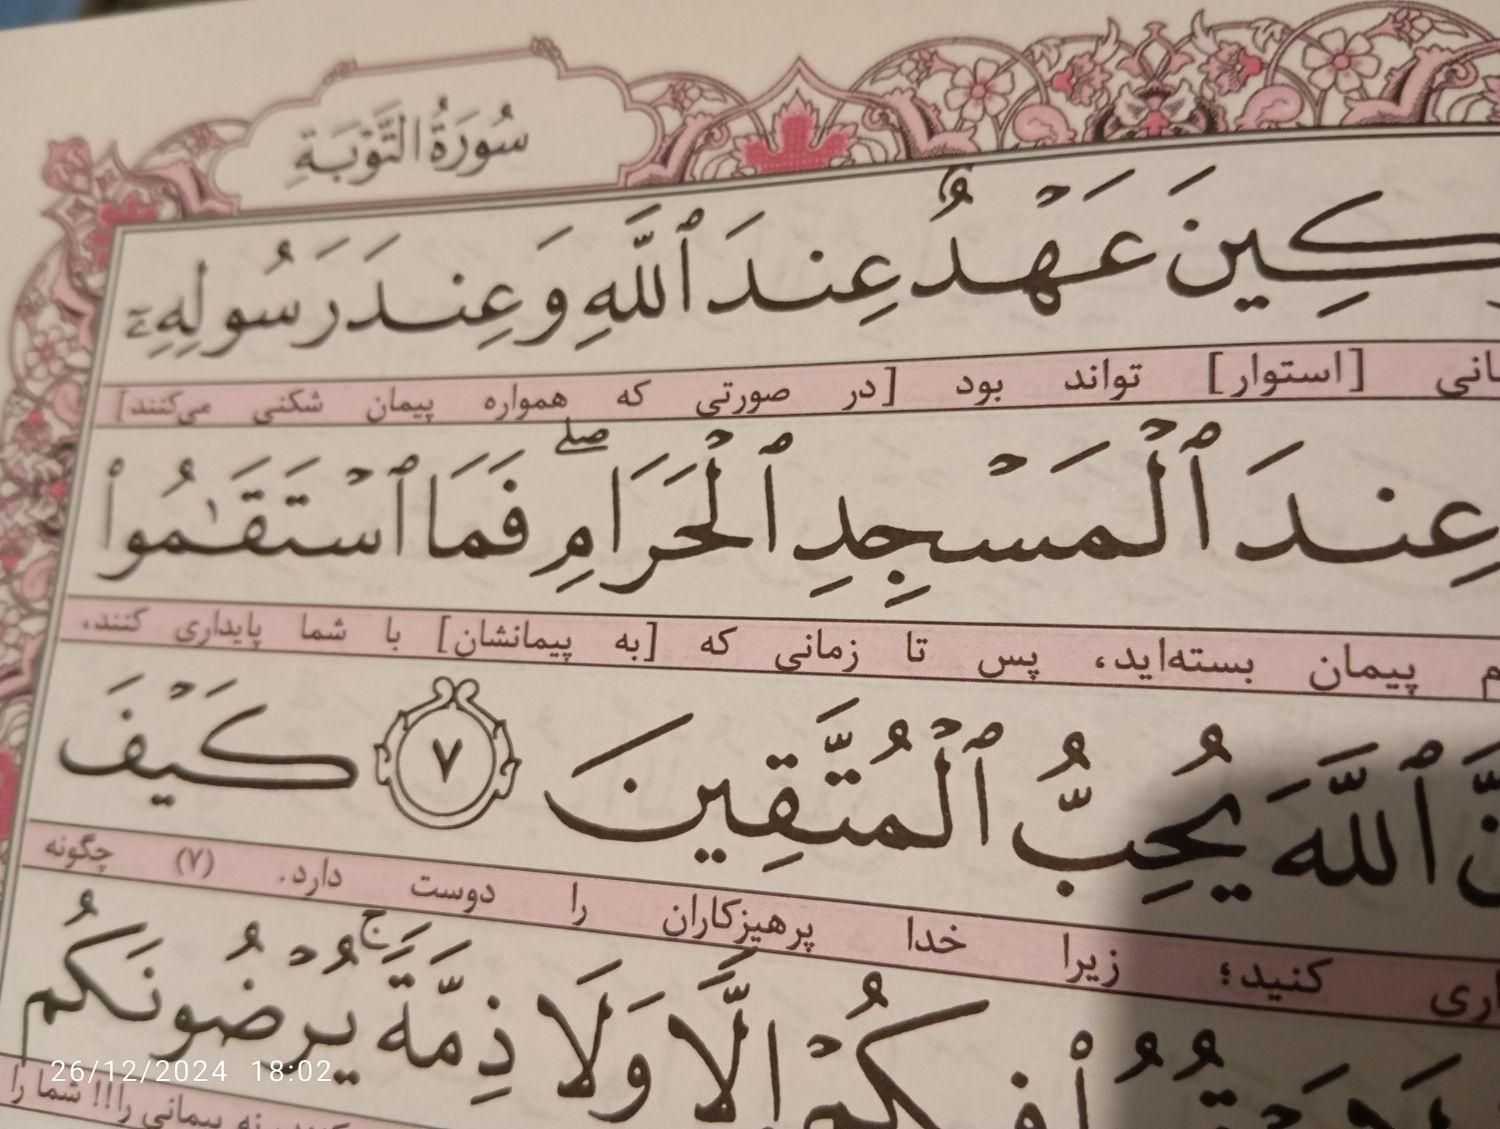 سُورَةُ التَّوْبَةِ
ـكِينَ عَهْدٌ عِندَ ٱللَّهِ وَعِندَ رَسُولِهِۦٓ
ـانی [استوار] تواند بود [در صورتی که همواره پیمان شکنی می‌کنند]
عِندَ ٱلْمَسْجِدِ ٱلْحَرَامِ ۖ فَمَا ٱسْتَقَٰمُوا۟
ـم پیمان بسته‌اید، پس تا زمانی که [به پیمانشان] با شما پایداری کنند،
ـنَّ ٱللَّهَ يُحِبُّ ٱلْمُتَّقِينَ ٧ كَيْفَ
ـاری کنید؛ زیرا خدا پرهیزکاران را دوست دارد. (۷) چگونه
فِيكُمْ إِلًّا وَلَا ذِمَّةً ۚ يُرْضُونَكُم
نه پیمانی را!!! شما را
26/12/2024 18:02